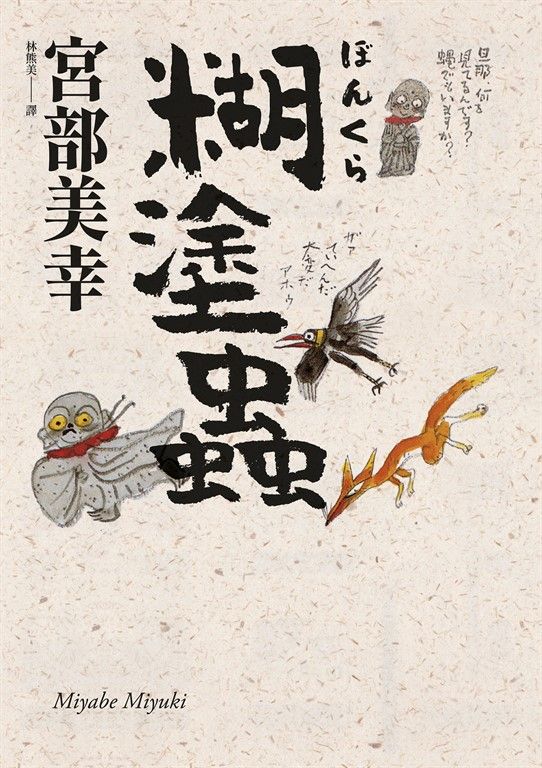 旦那、何を
見てるんです?
蝿でもいますか?
ぼんくら
糊塗蟲
宮部美幸
林熊美──譯
てぃへんだ
大変だ
アホウ
Miyabe Miyuki